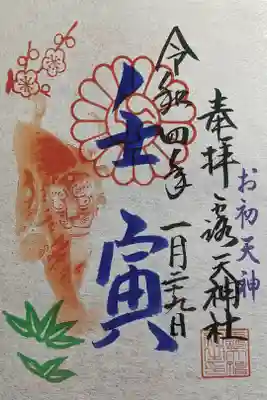 お初天神
奉拝
露天神社
壬寅
令和四年
一月二十九日